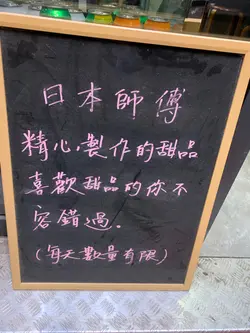 日本師傅
精心製作的甜品
喜歡甜品的你不
容錯過。
（每天數量有限）